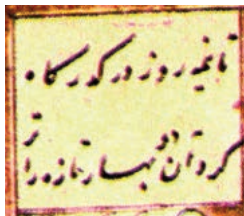 تا نیمه روز در کذرکاه
کرد آن دو بهار تازه را تر